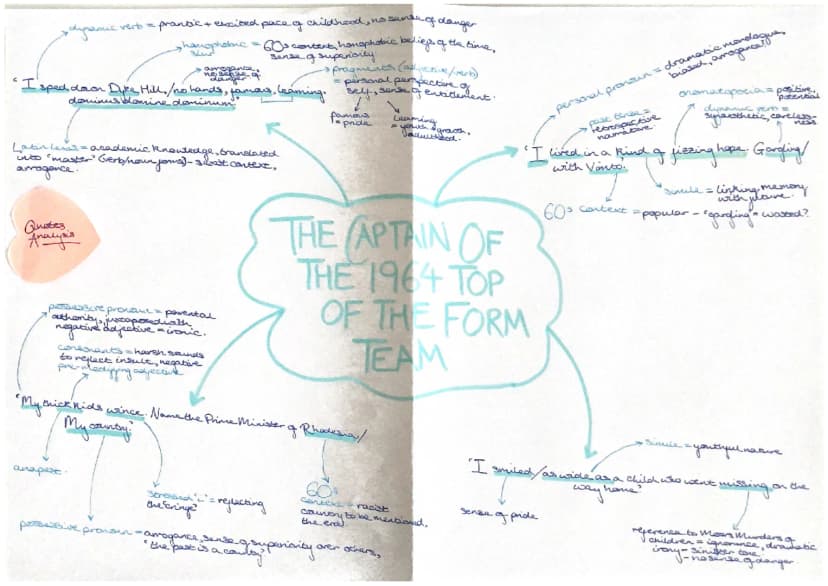 dynamic verb = frantic + excited pace of childhood, no sense of danger
homophobic slur = 60s context, homophobic beliefs of the time,
sense of superiority
arrogance,
no sense of
danger
fragments (adjective/verb)
= personal perspective of
self, sense of entitlement.
famous
= pride
learning
= youth + growth,
'I sped down Dyke Hill, / no hands, famous, learning,
dominus domine dominum'
Latin = academic knowledge, translated
into "master" (verb/noun forms) -
arrogance.
Quotes
Analysis
THE CAPTAIN OF
THE 1964 TOP
OF THE FORM
TEAM
personal pronoun = dramatic monologue,
biased, arrogance?
past tense =
retrospective
narrative.
onomatopoeia = positive,
potential
dynamic verb =
synaesthetic, careless-
ness
'I lived in a kind of fizzing hope. Gargling/
with Vimto.
simile = linking memory
with
60s context = popular - "gargling" = wasted?
possessive pronoun = parental
authority, juxtaposed with
negative adjective = ironic.
consonants = harsh sounds
to reflect insult, negative
pre-modifying adjective
'My thick kids wince. Name the Prime Minister of Rhodesia/
My country.'
anapest.
stressed 'i' = reflecting
the 'cringe'
60s
context = racist
country to be mentioned,
the end.
possessive pronoun = arrogance, sense of superiority over others,
"the past is a country?"
simile = youthful nature
'I smiled/as wide as a child who went missing on the
way home'
sense of pride
reference to Moors Murders of
children = ignorance, dramatic
irony - sinister tone
- no sense of danger.